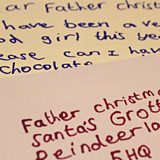 ar Father christ
have been a ve
od girl this yea
ease can I hav
Chocolate
Father christm
Santa's Grott
Reindeer la
5HQ